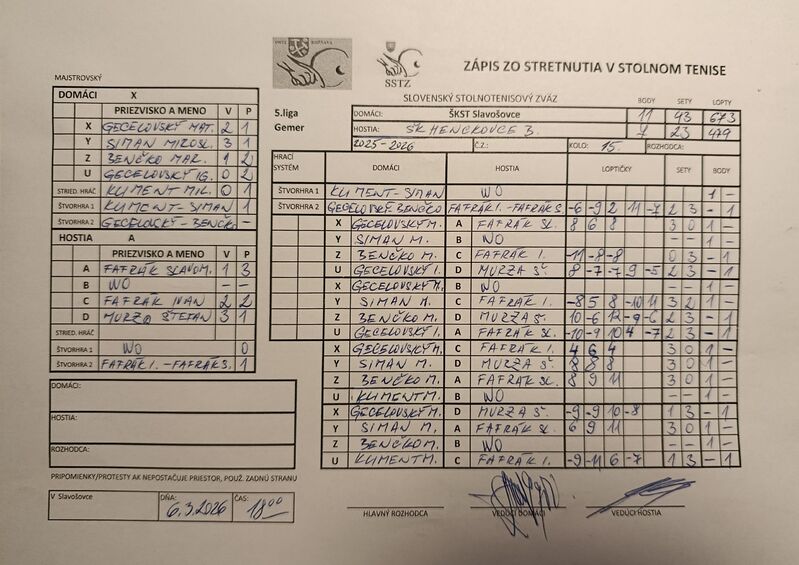 SSTZ
ZÁPIS ZO STRETNUTIA V STOLNOM TENISE
SLOVENSKÝ STOLNOTENISOVÝ ZVÄZ
MAJSTROVSKÝ
DOMÁCI X
PRIEZVISKO A MENO V P
X GECELOVSKÝ MAT. 2 1
Y SIMAN MIROSL. 3 1
Z BENČKO MAR. 1 2
U GECELOVSKÝ IG. 0 2
STRIED. HRÁČ KLIMENT MIL. 0 1
ŠTVORHRA 1 KLIMENT-SIMAN 1
ŠTVORHRA 2 GECELOVSKÝ-BENČKO -
HOSTIA A
PRIEZVISKO A MENO V P
A FAFRÁK SLAVOM. 1 3
B WO - -
C FAFRÁK IVAN 2 2
D MURZA ŠTEFAN 3 1
STRIED. HRÁČ
ŠTVORHRA 1 WO 0
ŠTVORHRA 2 FAFRÁK I.-FAFRÁK S. 1
DOMÁCI:
HOSTIA:
ROZHODCA:
PRIPOMIENKY/PROTESTY AK NEPOSTAČUJE PRIESTOR, POUŽ. ZADNÚ STRANU
V Slavošovce DŇA: 6.3.2026 ČAS: 18 00
BODY SETY LOPTY
5.liga DOMÁCI: ŠKST Slavošovce 11 43 673
Gemer HOSTIA: ŠK HENCKOVCE B. 7 23 479
2025-2026 Č.Z.: KOLO: 15. ROZHODCA:
HRACÍ SYSTÉM DOMÁCI HOSTIA LOPTIČKY SETY BODY
ŠTVORHRA 1 KLIMENT-SIMAN WO 1 -
ŠTVORHRA 2 GECELOVSKÝ-BENČKO FAFRÁK I.-FAFRÁK S. -6 -9 2 11 -7 2 3 - 1
X GECELOVSKÝ M. A FAFRÁK SL. 8 6 8 3 0 1 -
Y SIMAN M. B WO - - 1 -
Z BENČKO M. C FAFRÁK I. -11 -8 -8 0 3 - 1
U GECELOVSKÝ I. D MURZA Š. 8 -7 -7 9 -5 2 3 - 1
X GECELOVSKÝ M. B WO - - 1 -
Y SIMAN M. C FAFRÁK I. -8 5 8 -10 11 3 2 1 -
Z BENČKO M. D MURZA Š. 10 -6 12 -9 -6 2 3 - 1
U GECELOVSKÝ I. A FAFRÁK SL. -10 -9 10 4 -7 2 3 - 1
X GECELOVSKÝ M. C FAFRÁK I. 4 6 4 3 0 1 -
Y SIMAN M. D MURZA Š. 8 8 8 3 0 1 -
Z BENČKO M. A FAFRÁK SL. 8 9 11 3 0 1 -
U KLIMENT M. B WO - - 1 -
X GECELOVSKÝ M. D MURZA Š. -9 -9 10 -8 1 3 - 1
Y SIMAN M. A FAFRÁK SL. 6 9 11 3 0 1 -
Z BENČKO M. B WO - - 1 -
U KLIMENT M. C FAFRÁK I. -9 -11 6 -7 1 3 - 1
HLAVNÝ ROZHODCA VEDÚCI DOMÁCI VEDÚCI HOSTIA